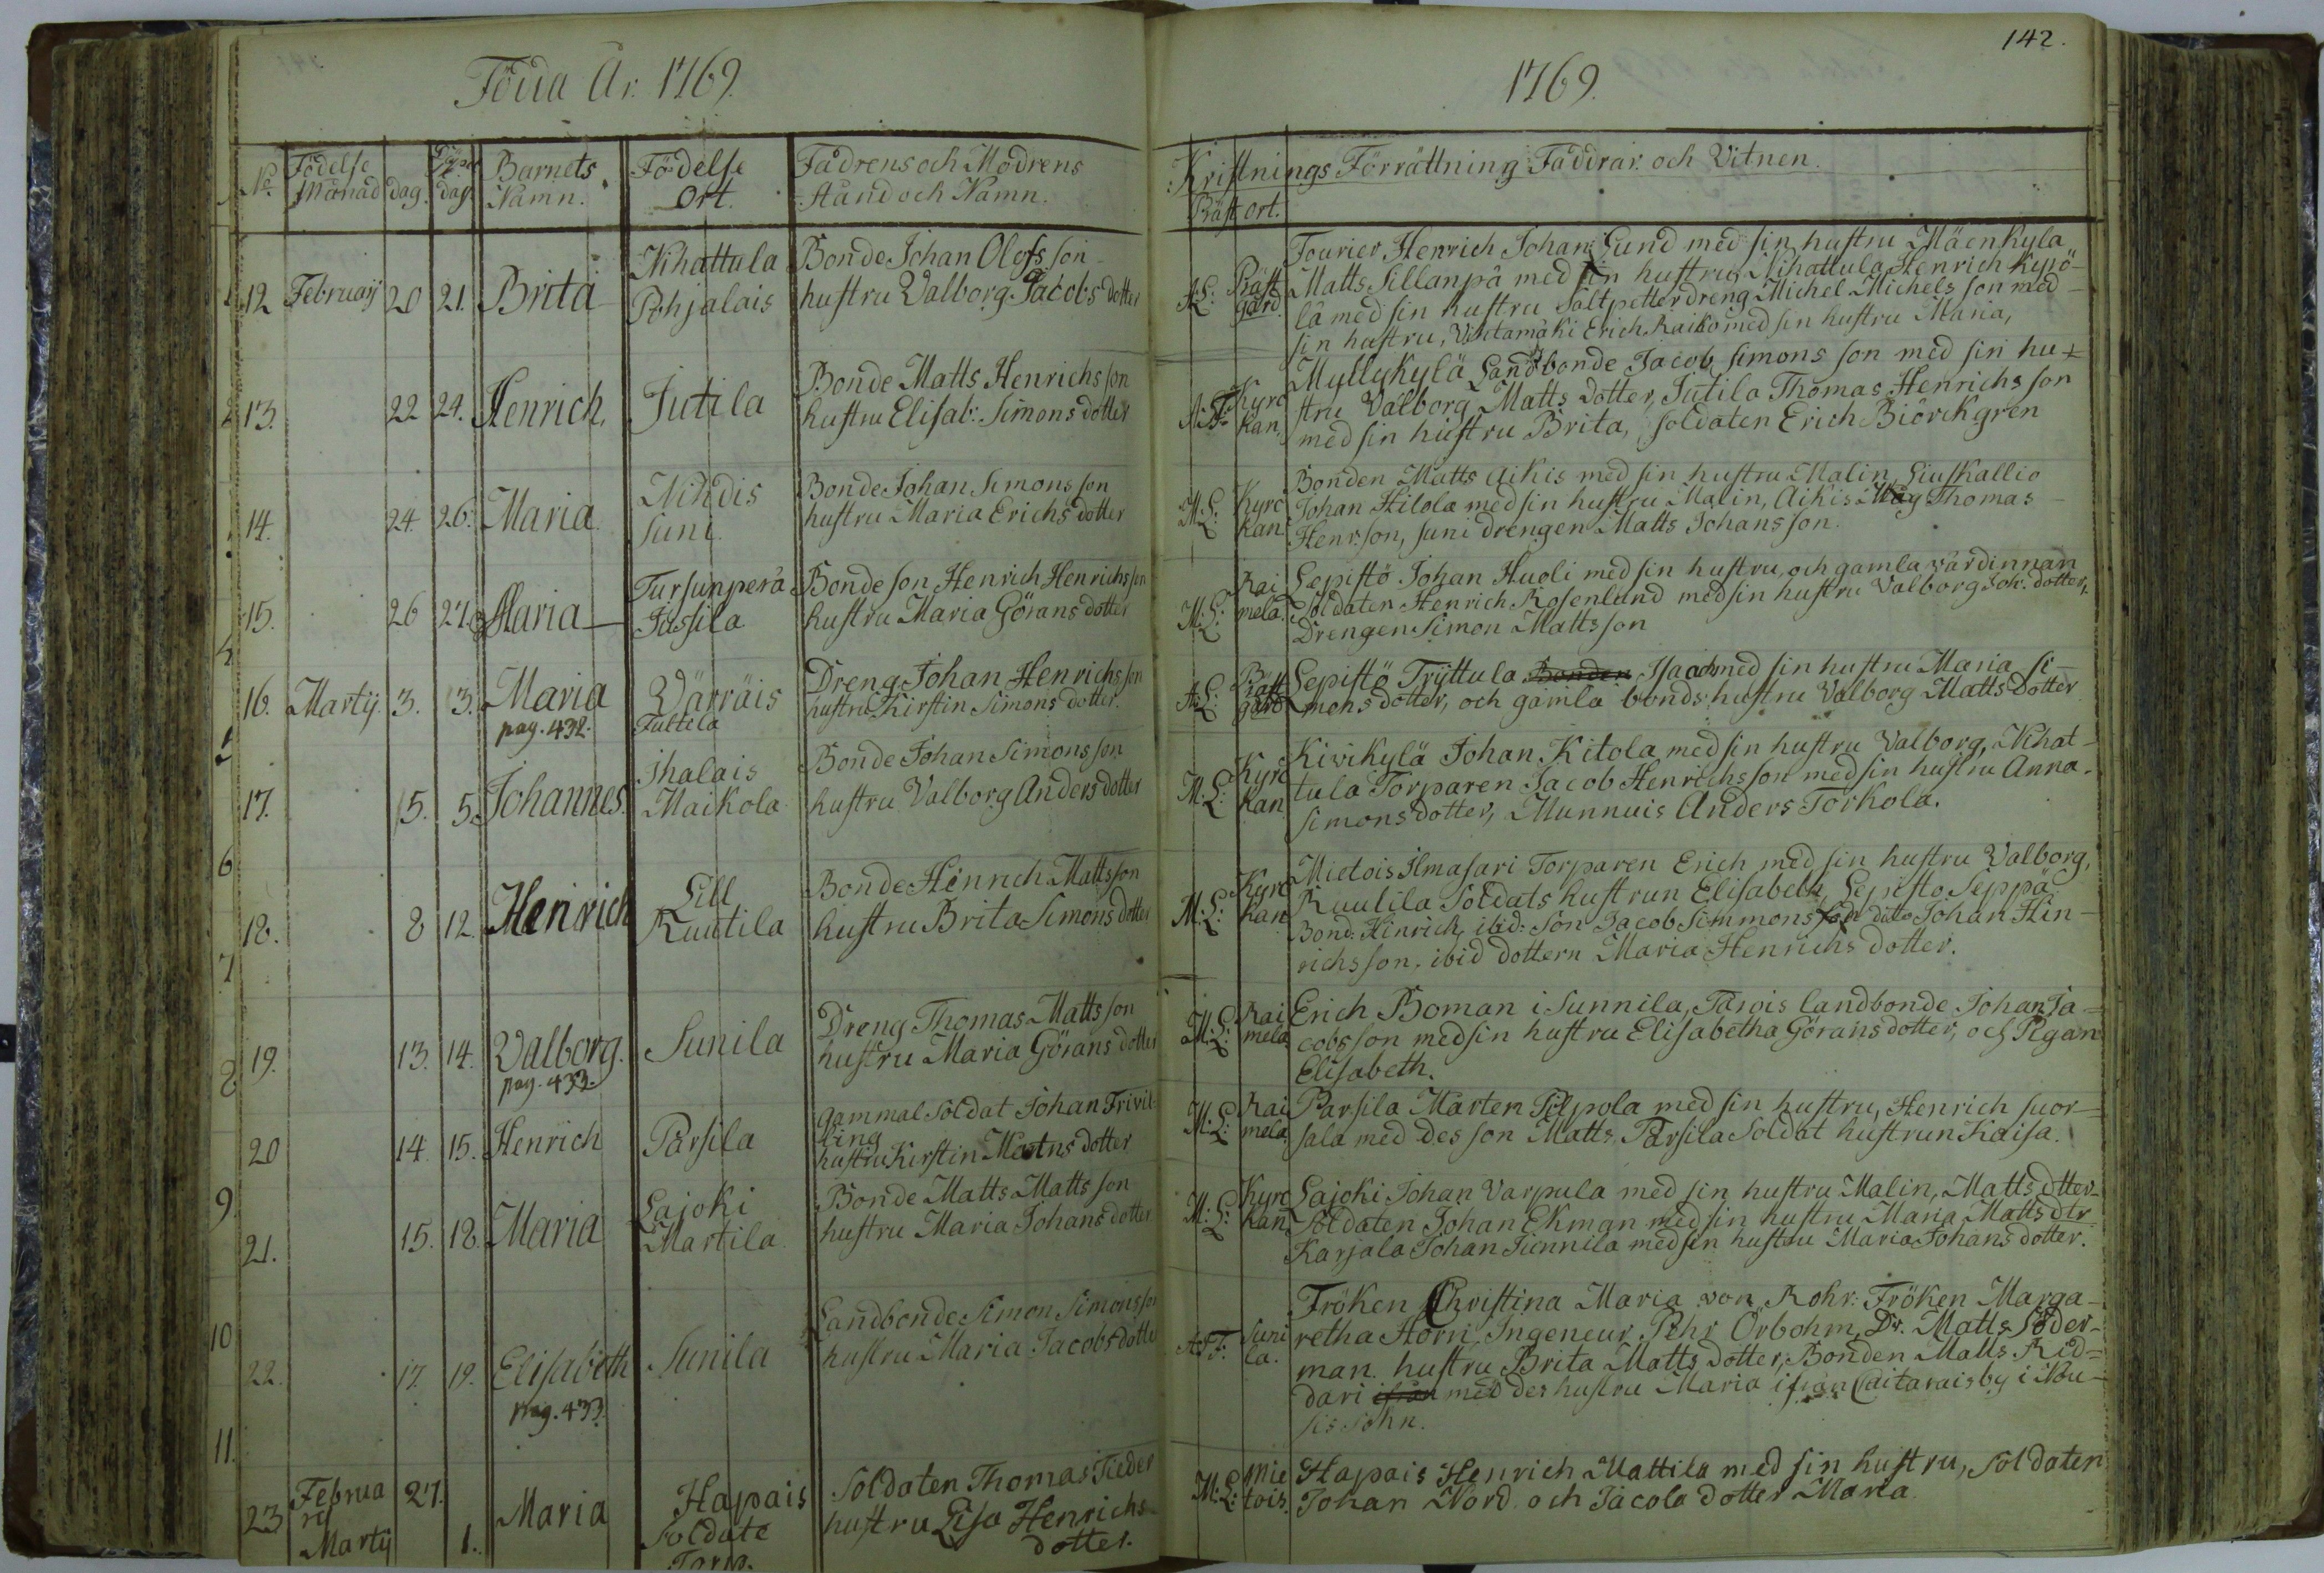 Föda År. 1769.
No. Födelse Månad dag. Döpel. dag. Barnets Namn. Födelse Ort. Fädrens och Modrens Stånd och Namn.
12 Februarij 20 21. Brita Nihattula Pohjalais
Bonde Johan Olofs son
hustru Valborg Jacobs dotter
13. 22 24. Henrich, Jutila
Bonde Matts Henrichs son
hustru Elisab: Simons dotter
14. 24 26. Maria Nihdis Suni
Bonde Johan Simons son
hustru Maria Erichs dotter
15. 26 27. Maria Tursunperä Jassila
Bonde son Henrich Henrichs son
hustru Maria Görans dotter
16. Martij. 3. 3. Maria Värräis Tultela
pag. 432.
Dreng Johan Henrichs son
hustru Kirstin Simons dotter.
17. 5. 5. Johannes. Ihalais Maikola
Bonde Johan Simons son
hustru Valborg Anders dotter
18. 8 12. Henrich Lill Ruutila
Bonde Henrich Matts son
hustru Brita Simons dotter
19. 13. 14. Valborg. Sunila
pag. 433.
Dreng Thomas Matts son
hustru Maria Görans dotter
20 14. 15. Henrich Parsila
gammal Soldat Johan Frivil
ling
hustru Kirstin Martns dotter
21. 15. 18. Maria Lajoki Martila
Bonde Matts Matts son
hustru Maria Johans dotter
22. 17. 19. Elisabeth Sunila
pag. 433.
Landbonde Simon Simons son
hustru Maria Jacobs dotter
23 Februarij 27. Martij 1. Maria Hapais Soldate Torp.
Soldaten Thomas Tieder
hustru Lisa Henrichs
dotter.
4
5
6
7
8
9
10
11.
142.
1769.
Kristnings Förrättning Faddrar och Vitnen.
Präst ort.
A:L: Präst gård.
Fourier Henrich Johan Lund med sin hustru Mäenkyla
Matts Sillanpä med sin hustru, Nihattula Henrich Kepö-
lä med sin hustru Saltpetterdreng Michel Michels son med
sin hustru, Vintamäki Erich Raiko med sin hustru Maria,
Kyrc kan,
Myllykylä Landbonde Jacob Simons son med sin hu-
stru Valborg Matts dotter, Jutila Thomas Henrichs son
med sin hustru Brita, Soldaten Erich Biörckgren
M:L: Kyrc kan
Bonden Matts Aikis med sin hustru Malin, Liuskallio
Johan Hilola med sin hustru Malin, Aikis Måg Thomas
Henr:son, Suni drengen Matts Johans son.
M:L: Rai mela.
Lepistö Johan Huoli med sin hustru, och gamla värdinnan
Soldaten Henrich Rosenlund med sin hustru Valborg Joh: dotter,
Drengen Simon Matts son
A:L: Präst gård
Lepistö Tryttula Bonden Isaac med sin hustru Maria Si-
mons dotter, och gamla bonds hustru Valborg Matts dotter
M:L: Kyrc kan
Kivikylä Johan Kitola med sin hustru Valborg, Nihat-
tula Torparen Jacob Henrichs son med sin hustru Anna
Simons dotter, Munnuis Anders Torkola.
M:L: Kyrc kan
Mietois Ilmasari Torparen Erich med sin hustru Valborg,
Ruutila Soldats hustrun Elisabeth, Lepisto Seppä
Bond: Hinrich, ibid: Son Jacob Simmons son dito Johan Hin-
richs son. ibid dottern Maria Henrichs dotter.
M:L: Rai mela
Erich Boman i Sunnila, Tarvis landbonde Johan Ja-
cobs son med sin hustru Elisabetha Görans dotter, och Pigan
Elisabeth.
M:L: Rai mela
Parsila Marten Pilpola med sin hustru, Henrich Suor-
sala med des son Matts. Parsila Soldat hustrun Kaisa.
M:L: Kyrc kan
Lajoki Johan Varpula med sin hustru Malin, Matts dtter-
Soldaten Johan Ekman med sin hustru Maria Matts dtr
Karjala Johan Tiennila med sin hustru Maria Johans dotter.
Suni la.
Fröken Christina Maria von Rohr: Fröken Marga-
retha Horn, Ingeneur Pehr Örbohm, Dr. Matts Söder-
man hustru Brita Matts dotter, Bonden Matts Rid-
dari med des hustru Maria ifrån Caitarais by i Nou-
sis Sohn.
M:L: Mie tois.
Hapais Henrich Mattila med sin hustru, Soldaten
Johan Nord och Jacola dotter Maria